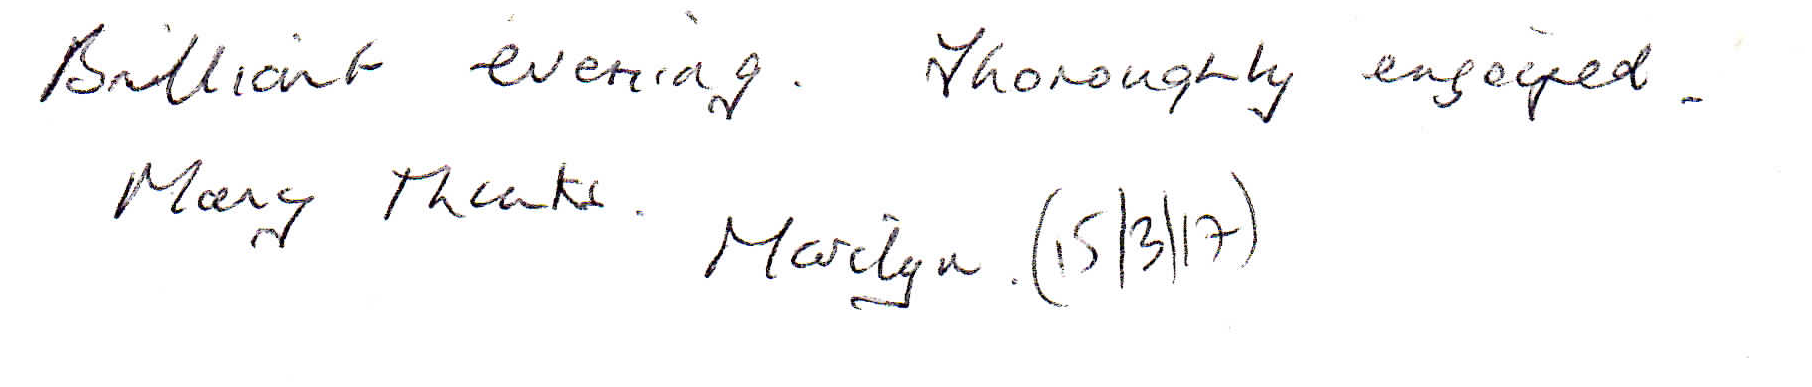 Brilliant evening. Thoroughly engaged.
Many Thanks.
Marilyn. (15/3/17)